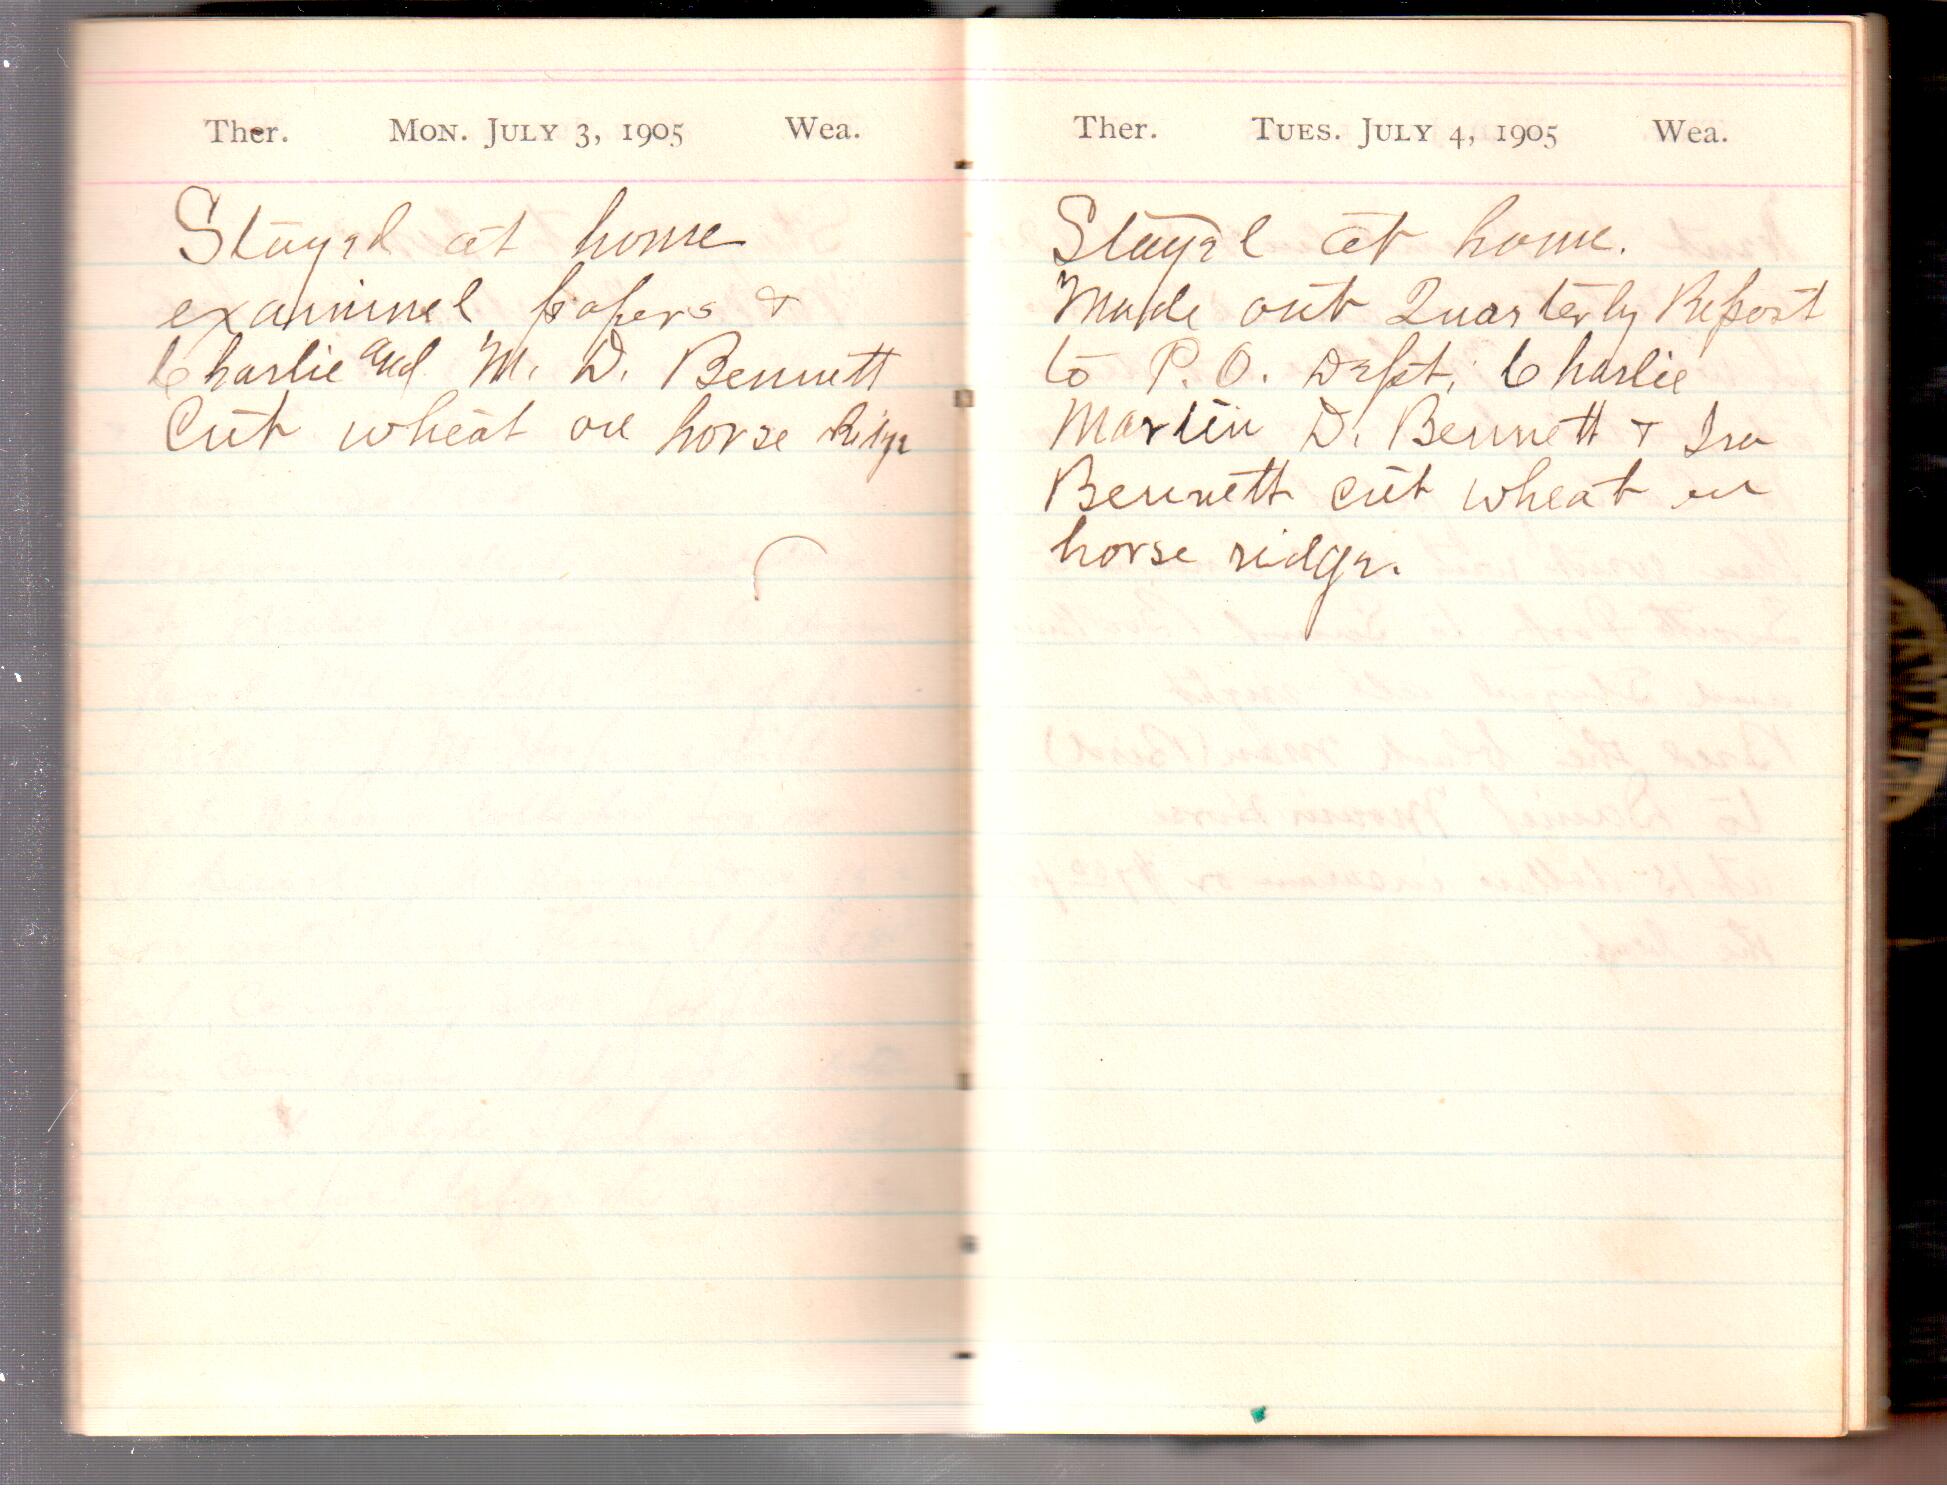 Ther. Mon. July 3, 1905 Wea.
Stayed at home
examined papers &
Charlie and M. D. Bennett
Cut wheat on horse Ridge
Ther. Tues. July 4, 1905 Wea.
Stayed at home.
Made out Quarterly Report
to P. O. Dept; Charlie
Martin D. Bennett & Ira
Bennett cut wheat on
horse ridge.